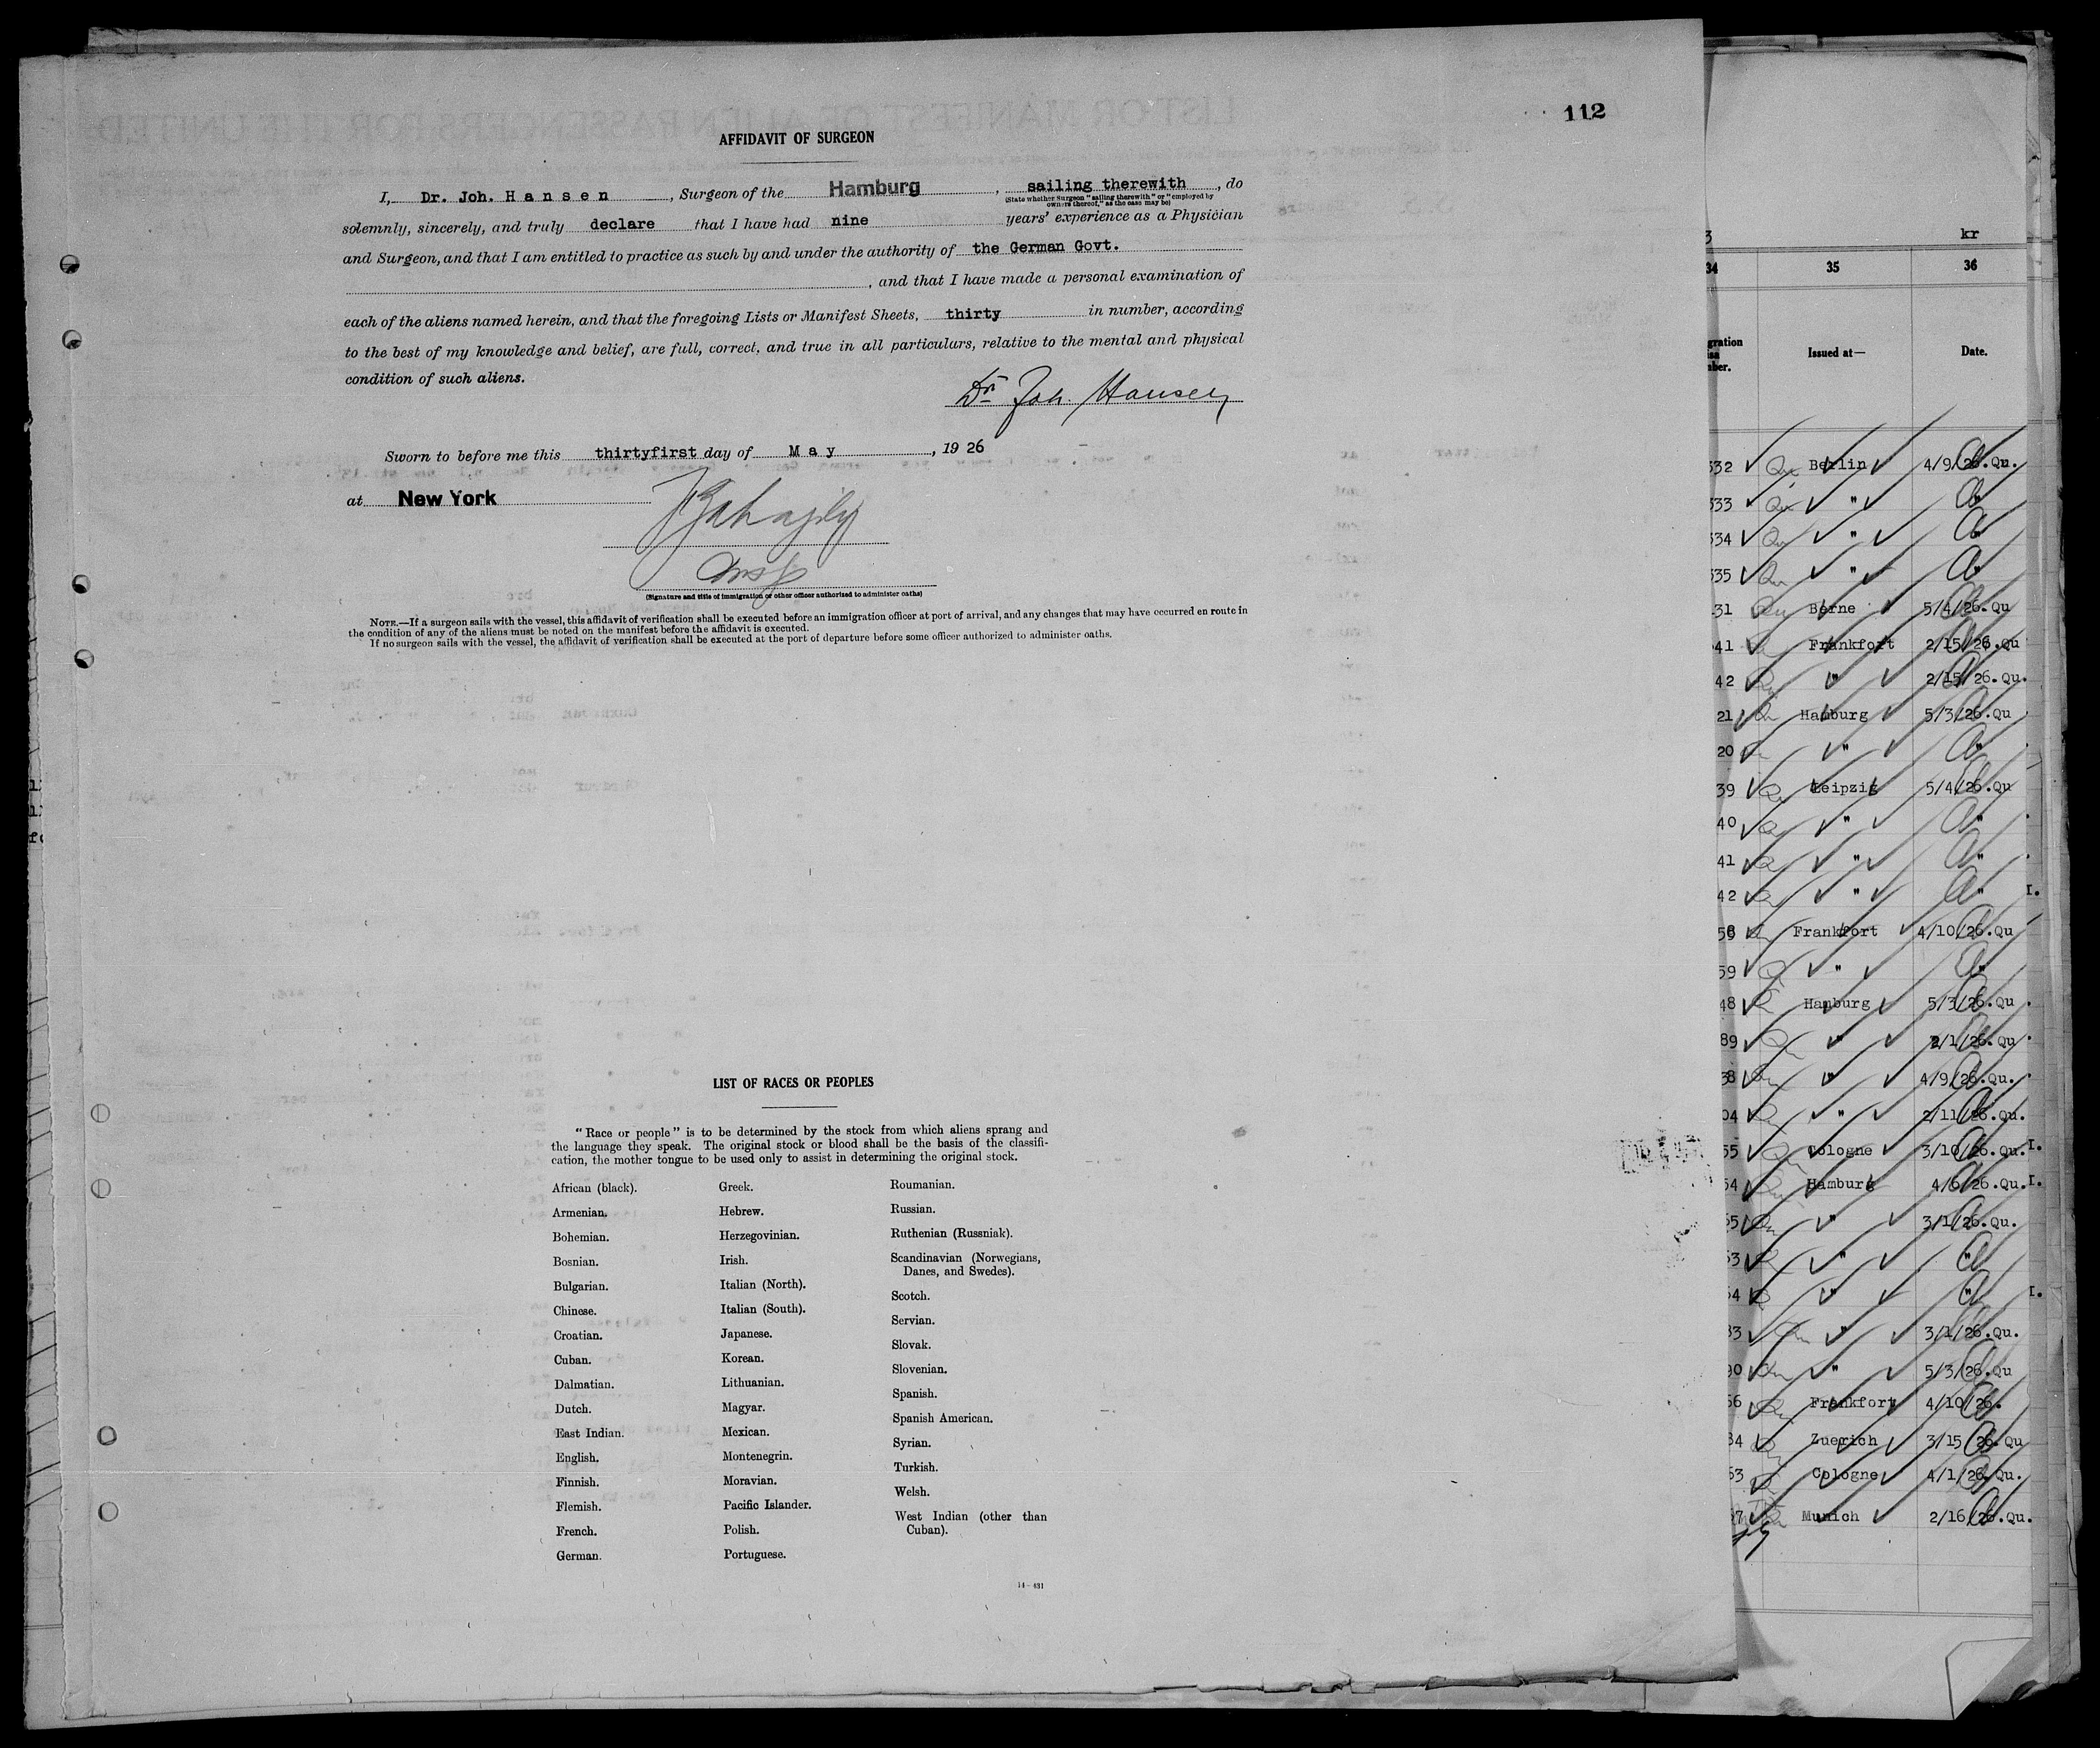 112
AFFIDAVIT OF SURGEON
I, Dr. Joh. Hansen, Surgeon of the Hamburg, sailing therewith, do
(State whether Surgeon "sailing therewith" or "employed by
owners thereof," as the case may be)
solemnly, sincerely, and truly declare that I have had nine years' experience as a Physician
and Surgeon, and that I am entitled to practice as such by and under the authority of the German Govt.
, and that I have made a personal examination of
each of the aliens named herein, and that the foregoing Lists or Manifest Sheets, thirty in number, according
to the best of my knowledge and belief, are full, correct, and true in all particulars, relative to the mental and physical
condition of such aliens.
Dr Joh. Hansen
Sworn to before me this thirtyfirst day of May, 1926
at New York
Insp
(Signature and title of immigration or other officer authorized to administer oaths)
NOTE.—If a surgeon sails with the vessel, this affidavit of verification shall be executed before an immigration officer at port of arrival, and any changes that may have occurred en route in
the condition of any of the aliens must be noted on the manifest before the affidavit is executed.
If no surgeon sails with the vessel, the affidavit of verification shall be executed at the port of departure before some officer authorized to administer oaths.
LIST OF RACES OR PEOPLES
"Race or people" is to be determined by the stock from which aliens sprang and
the language they speak. The original stock or blood shall be the basis of the classifi-
cation, the mother tongue to be used only to assist in determining the original stock.
African (black).
Armenian.
Bohemian.
Bosnian.
Bulgarian.
Chinese.
Croatian.
Cuban.
Dalmatian.
Dutch.
East Indian.
English.
Finnish.
Flemish.
French.
German.
Greek.
Hebrew.
Herzegovinian.
Irish.
Italian (North).
Italian (South).
Japanese.
Korean.
Lithuanian.
Magyar.
Mexican.
Montenegrin.
Moravian.
Pacific Islander.
Polish.
Portuguese.
Roumanian.
Russian.
Ruthenian (Russniak).
Scandinavian (Norwegians,
Danes, and Swedes).
Scotch.
Servian.
Slovak.
Slovenian.
Spanish.
Spanish American.
Syrian.
Turkish.
Welsh.
West Indian (other than
Cuban).
14—631
3 kr
34 35 36
Issued at— Date.
332 Berlin 4/9/26.Qu.
333 " "
334 " "
335 " "
31 Berne 5/4/26.Qu
41 Frankfort 2/15/26.Qu
42 " 2/15/26.Qu.
21 Hamburg 5/3/26.Qu
20 " "
39 Leipzig 5/4/26.Qu
40 " "
41 " "
42 " "
58 Frankfort 4/10/26.Qu
59 " "
48 Hamburg 5/3/26.Qu
89 " 2/1/26.Qu
38 " 4/9/26.Qu.
04 " 2/11/26.Qu.
55 Cologne 3/10/26.Qu.
54 Hamburg 4/6/26.Qu.
55 " 3/1/26.Qu.
53 " "
54 " "
33 " 3/1/26.Qu.
90 " 5/3/26.Qu
56 Frankfort 4/10/26.
34 Zuerich 3/15/26.Qu
53 Cologne 4/1/26.Qu.
97 Munich 2/16/26.Qu.